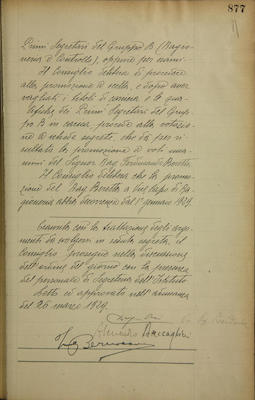 877
Primi Segretari del Gruppo B (Ragio-
neria e Controllo), oppure per esami.
Il Consiglio delibera di procedere
alla promozione a scelta, e dopo aver
vagliati i titoli di carriera e le qua-
lifiche dei Primi Segretari del Grup-
po B in carica, procede alla votazio-
ne a schede segrete, che dà per ri-
sultato la promozione a voti una-
nimi del Signor Rag. Ferdinando Boretta.
Il Consiglio delibera che la promo-
zione del Rag. Boretta a Capo di Ra-
gioneria abbia decorrenza dal 1° gennaio 1929.
Esaurita così la trattazione degli argo-
menti da svolgersi in seduta segreta, il
Consiglio prosegue nella discussione
dell'ordine del giorno con la presenza
del personale di Segreteria dell'Istituto.
Letto ed approvato nell'adunanza
del 26 marzo 1929.